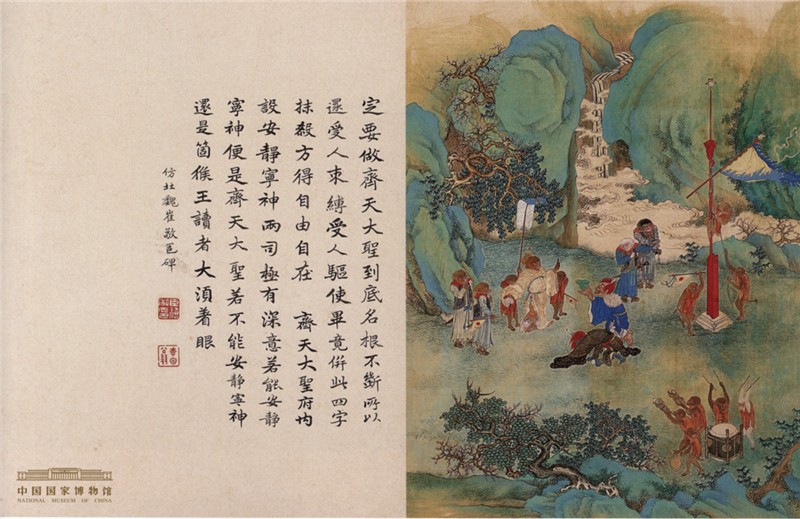 定要做齊天大聖到底名根不斷所以
還受人束縛受人驅使畢竟併此四字
抹殺方得自由自在 齊天大聖府内
設安靜寧神兩司極有深意若能安靜
寧神便是齊天大聖若不能安靜寧神
還是箇猴王讀者大須著眼
仿北魏崔敬邕碑
中国国家博物馆
NATIONAL MUSEUM OF CHINA